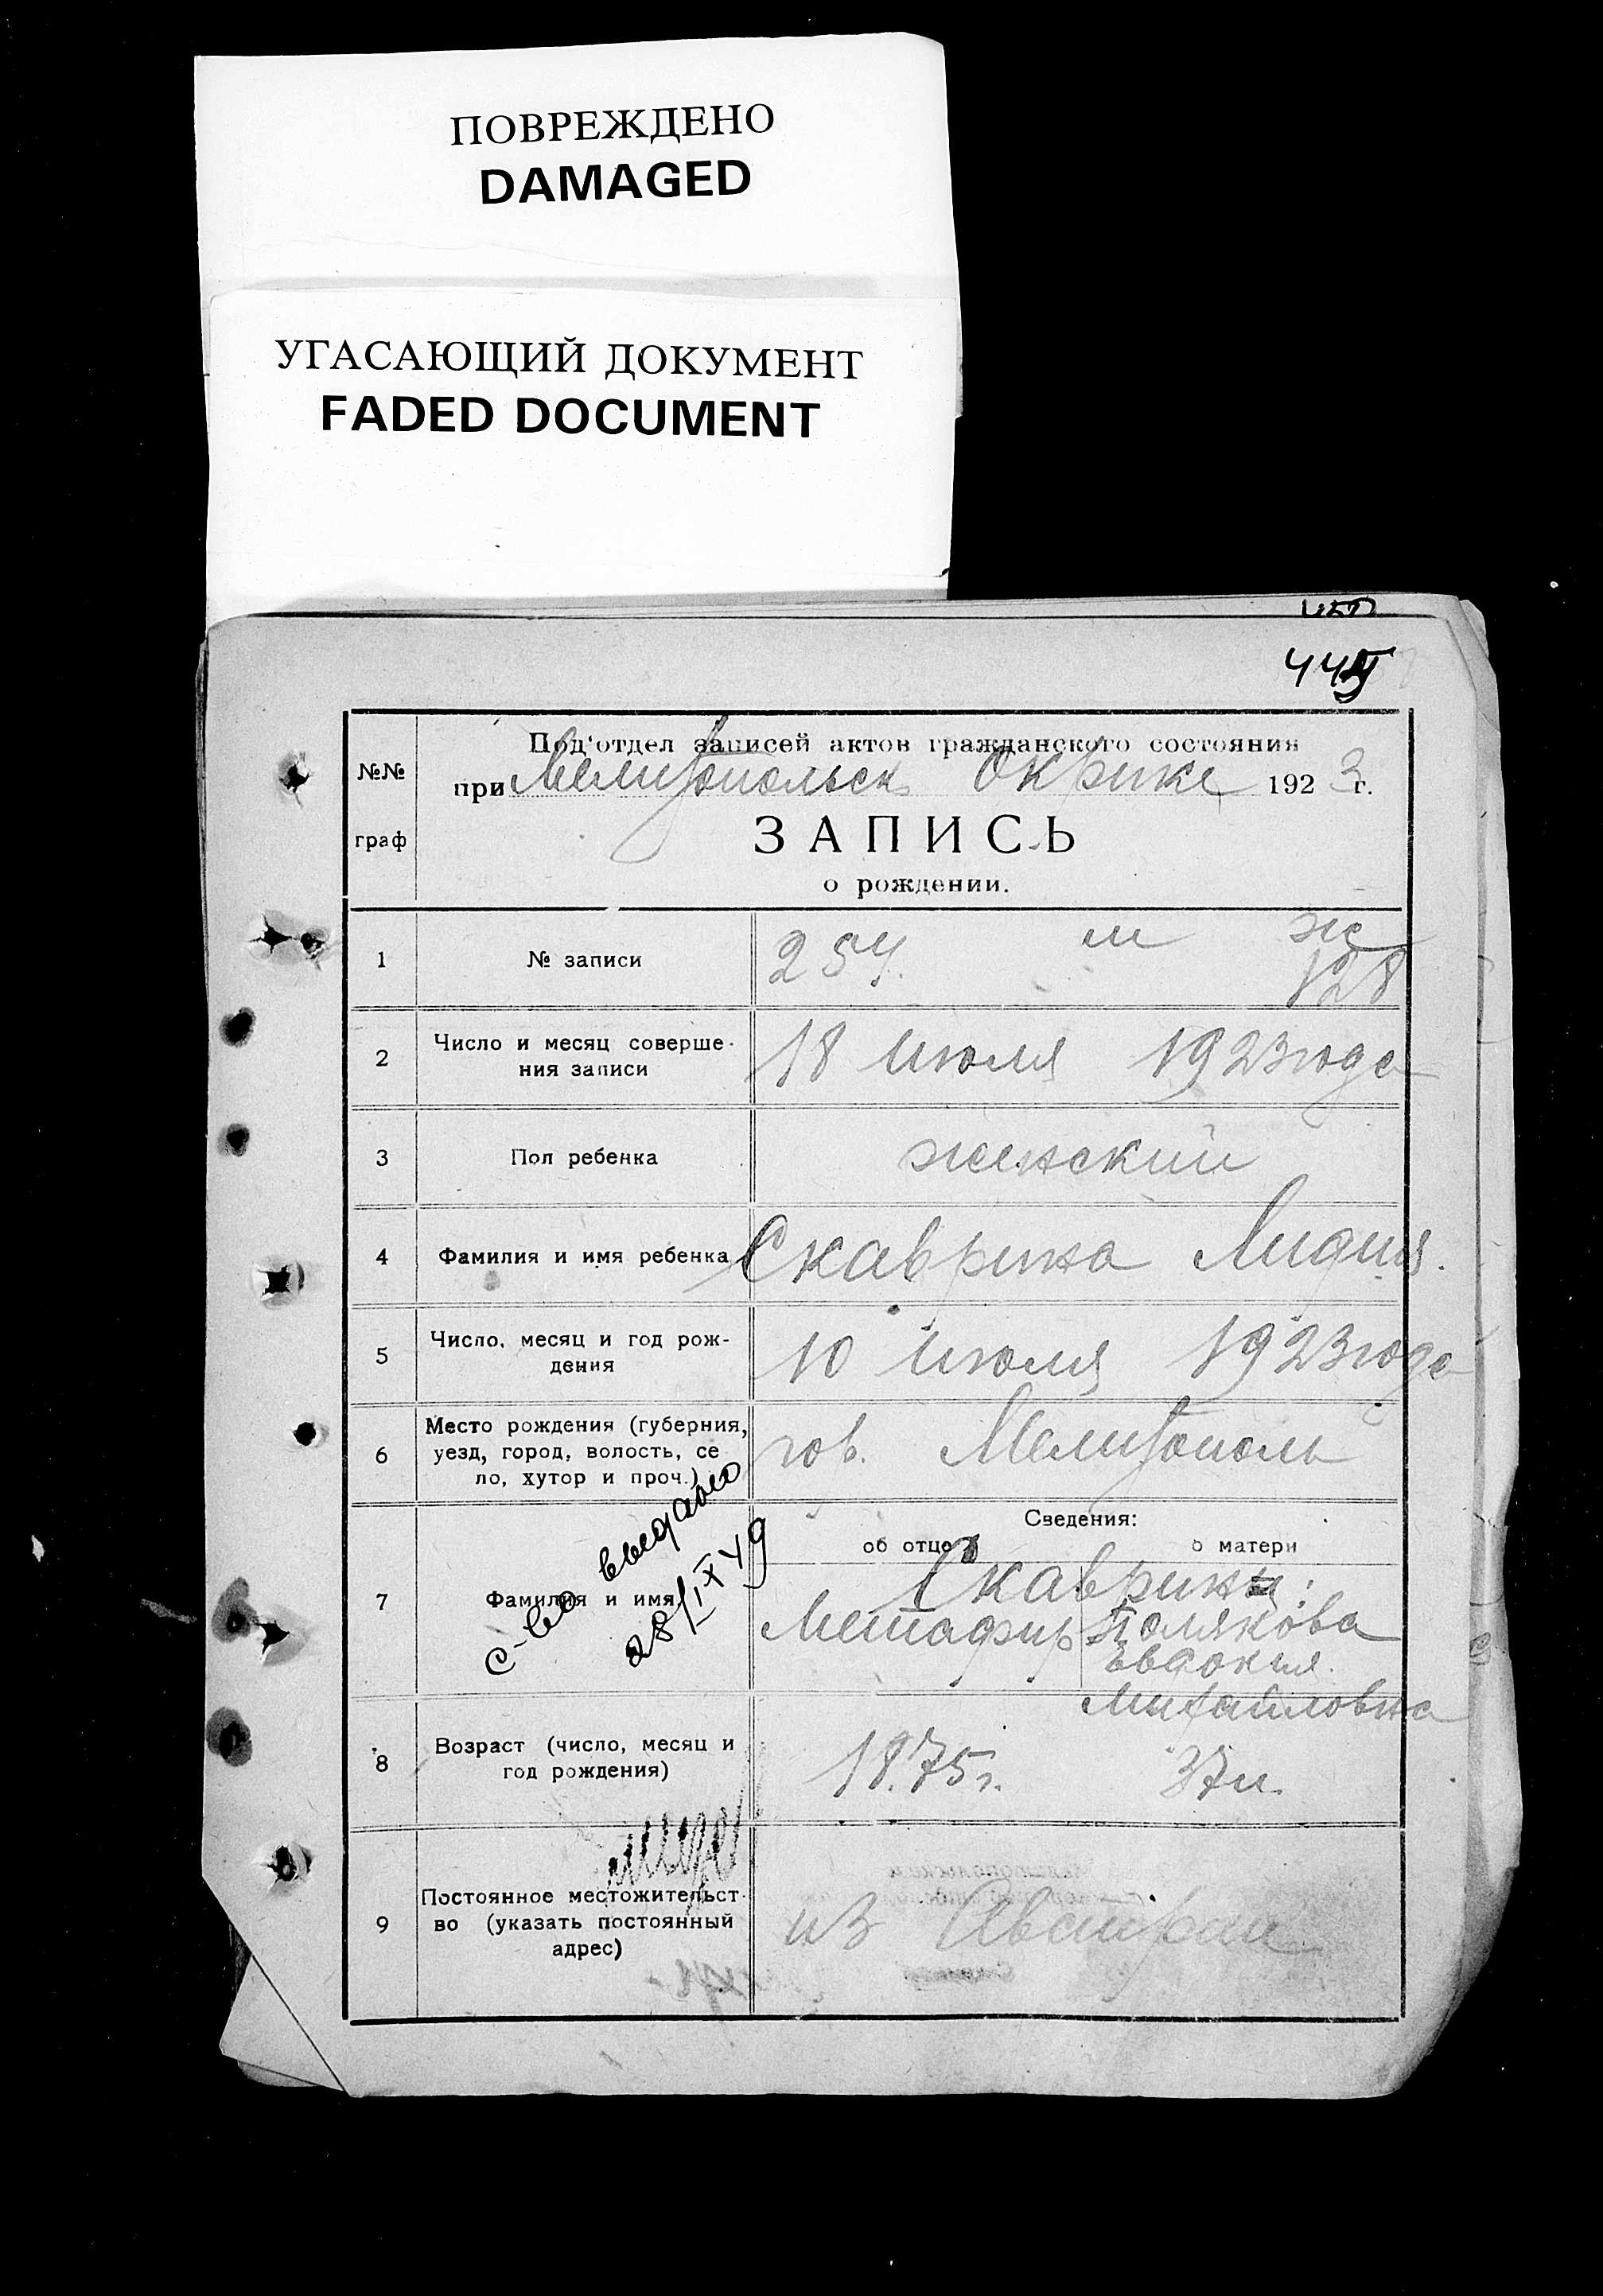 ПОВРЕЖДЕНО
DAMAGED
УГАСАЮЩИЙ ДОКУМЕНТ
FADED DOCUMENT
№№ граф
Под'отдел записей актов гражданского состояния
при Мелитопольск Окрике 1923 г.
ЗАПИСЬ
о рождении.
м ж
1 № записи 257. 128
2 Число и месяц соверше-
ния записи
18 июля 1923 года
3 Пол ребенка женский
4 Фамилия и имя ребенка Скаврина Лидия.
5 Число, месяц и год рож-
дения
10 июля 1923 года
6 Место рождения (губерния,
уезд, город, волость, се
ло, хутор и проч.)
гор. Мелитополь
Сведения:
об отце о матери
7 Фамилия и имя
Скаврин
Метафир Полякова
Евдокия.
Михайловна
с-во выдано
28/IX 49
8 Возраст (число, месяц и
год рождения)
1875 г. 37 л.
9 Постоянное местожительст-
во (указать постоянный
адрес)
из Австрии